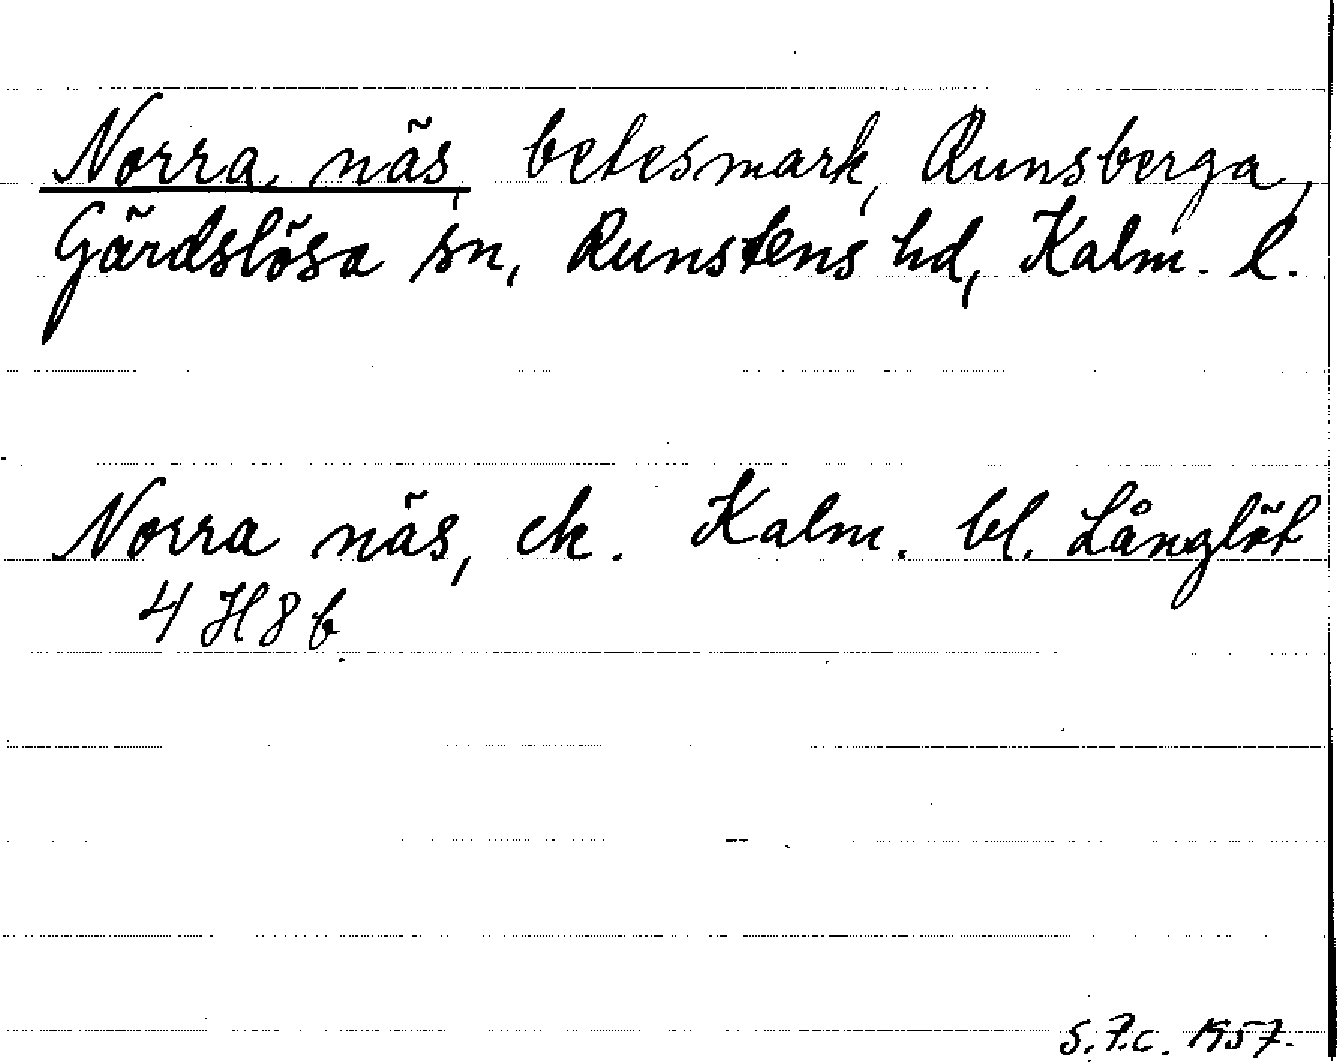 Norra näs, betesmark, Runsberga,
Gärdslösa sn, Runstens hd, Kalm. l.
Norra näs, ek. Kalm. bl. Långlöt
4 H 8 b
S. P. c. 1957.